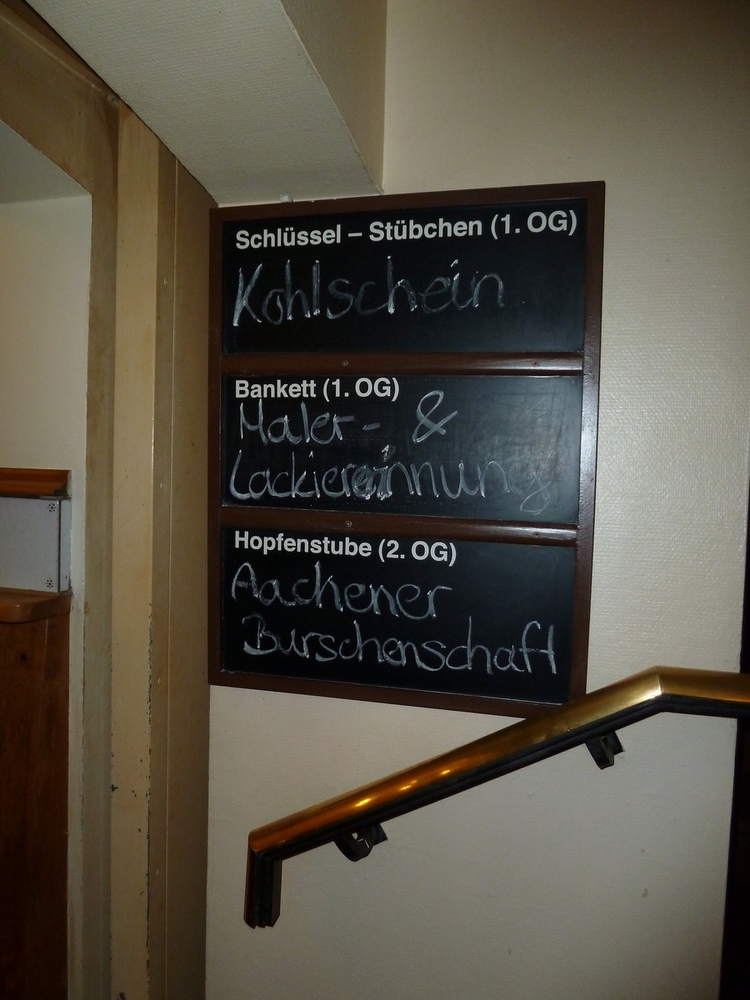 Schlüssel – Stübchen (1. OG)
Kohlschein
Bankett (1. OG)
Maler- &
Lackiererinnung
Hopfenstube (2. OG)
Aachener
Burschenschaft